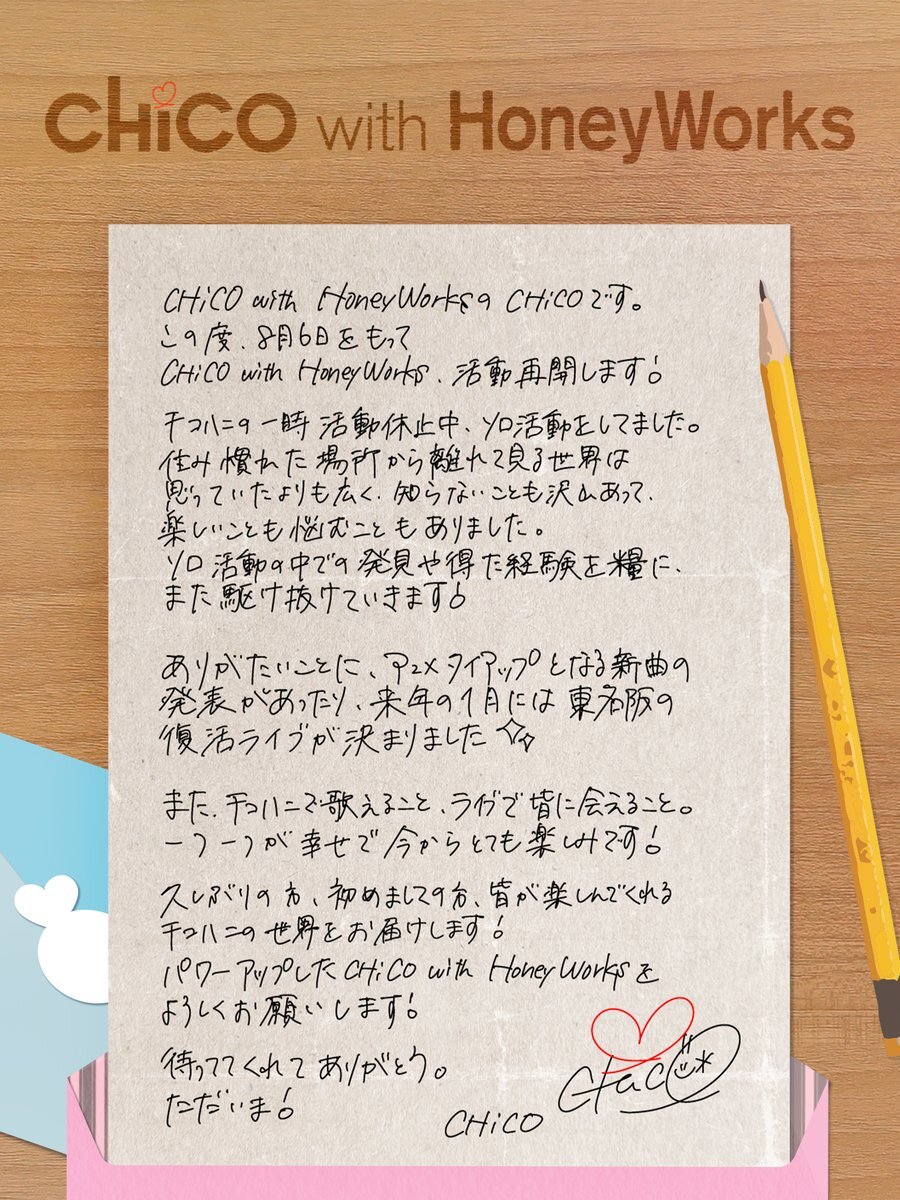 CHiCO with HoneyWorks
CHiCO with HoneyWorksの CHiCOです。
この度、8月6日をもって
CHiCO with HoneyWorks、活動再開します!
チコハニの一時活動休止中、ソロ活動をしてました。
住み慣れた場所から離れて見る世界は
思っていたよりも広く、知らないことも沢山あって、
楽しいことも悩むこともありました。
ソロ活動の中での発見や得た経験を糧に、
また駆け抜けていきます!
ありがたいことに、アニメタイアップとなる新曲の
発表があったり、来年の1月には東名阪の
復活ライブが決まりました
また、チコハニで歌えること、ライブで皆に会えること。
一つ一つが幸せで今からとても楽しみです!
久しぶりの方、初めましての方、皆が楽しんでくれる
チコハニの世界をお届けします!
パワーアップしたCHiCO with HoneyWorksを
よろしくお願いします!
待っててくれてありがとう。
ただいま!
CHiCO